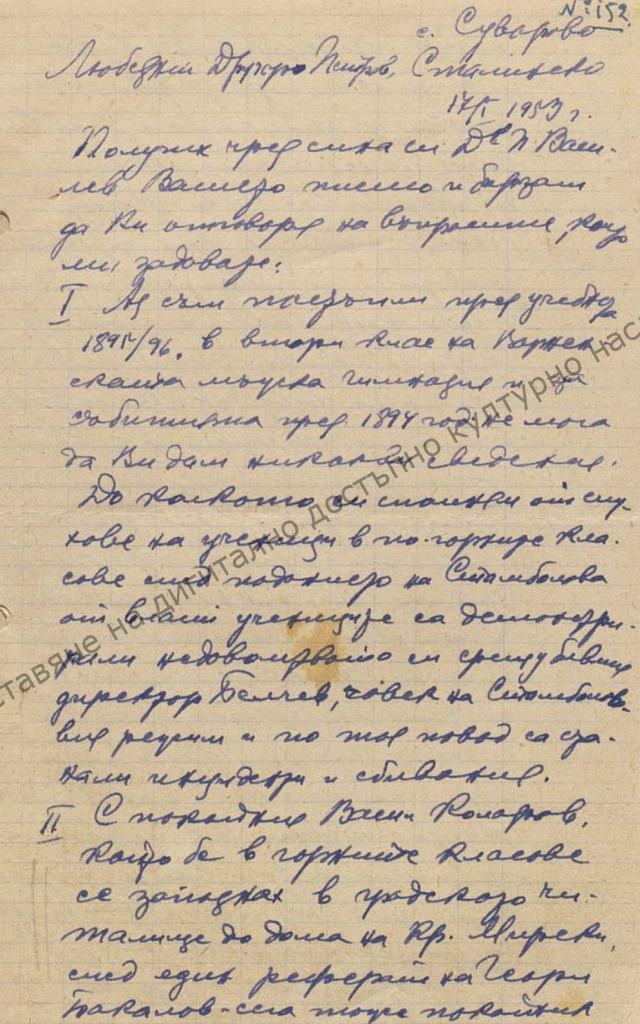 № 152
с. Суворово
Любезний Другарю Петров, Сталинско
17/I 1953 г.
Получих чрез сина си Д-р П. Васи-
лев Вашето писмо и бързам
да Ви отговоря на въпросите, които
ми задавате:
I Аз съм постъпил през учебната
1895/96. в втори клас на Варнен-
ската мъжка гимназия и за
събитията през 1894 год. не мога
да Ви дам никакви сведения.
До колкото си спомням от слу-
хове на ученици в по-горните кла-
сове след падането на Стамболова
от власт учениците са демонстри-
рали недоволството си срещу бивши
директор Белчев, човек на Стамболов-
вия режим и по тоя повод са ста-
нали инциденти и сбивания.
II С покойния Васил Коларов,
който бе в горните класове
се запознах в градското чи-
талище до дома на Кр. Мирски,
след един реферат на Георги
Бакалов - сега тоже покойник
ставяне на дигитално достъпно културно нас